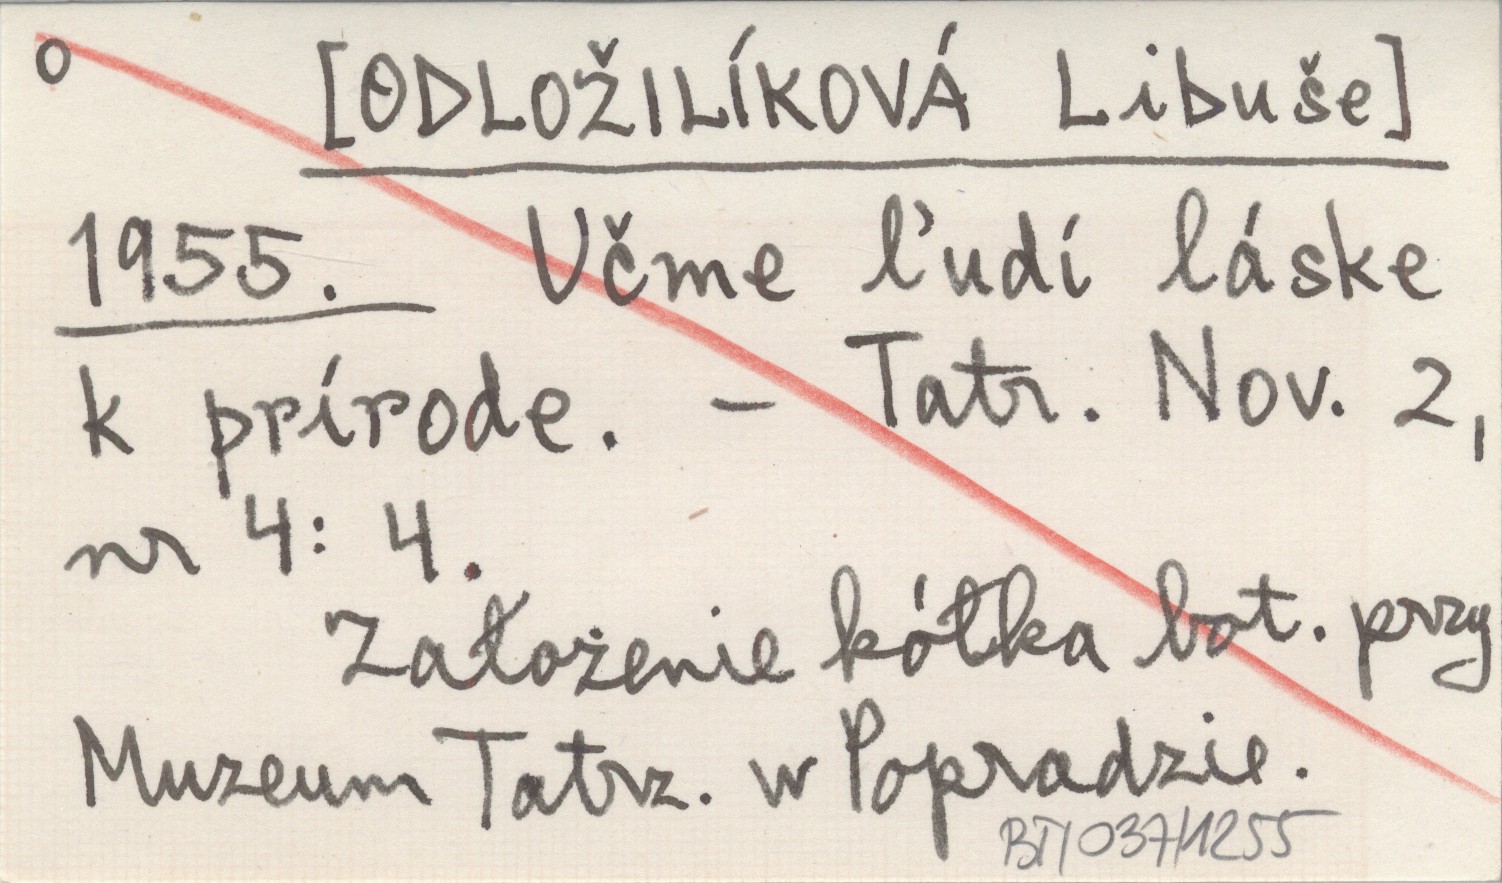 o [ODLOŽILÍKOVÁ Libuše]
1955. Učme ľudí láske
k prírode. – Tatr. Nov. 2,
nr 4: 4.
Założenie kółka bot. przy
Muzeum Tatrz. w Popradzie.
BT/037/1255